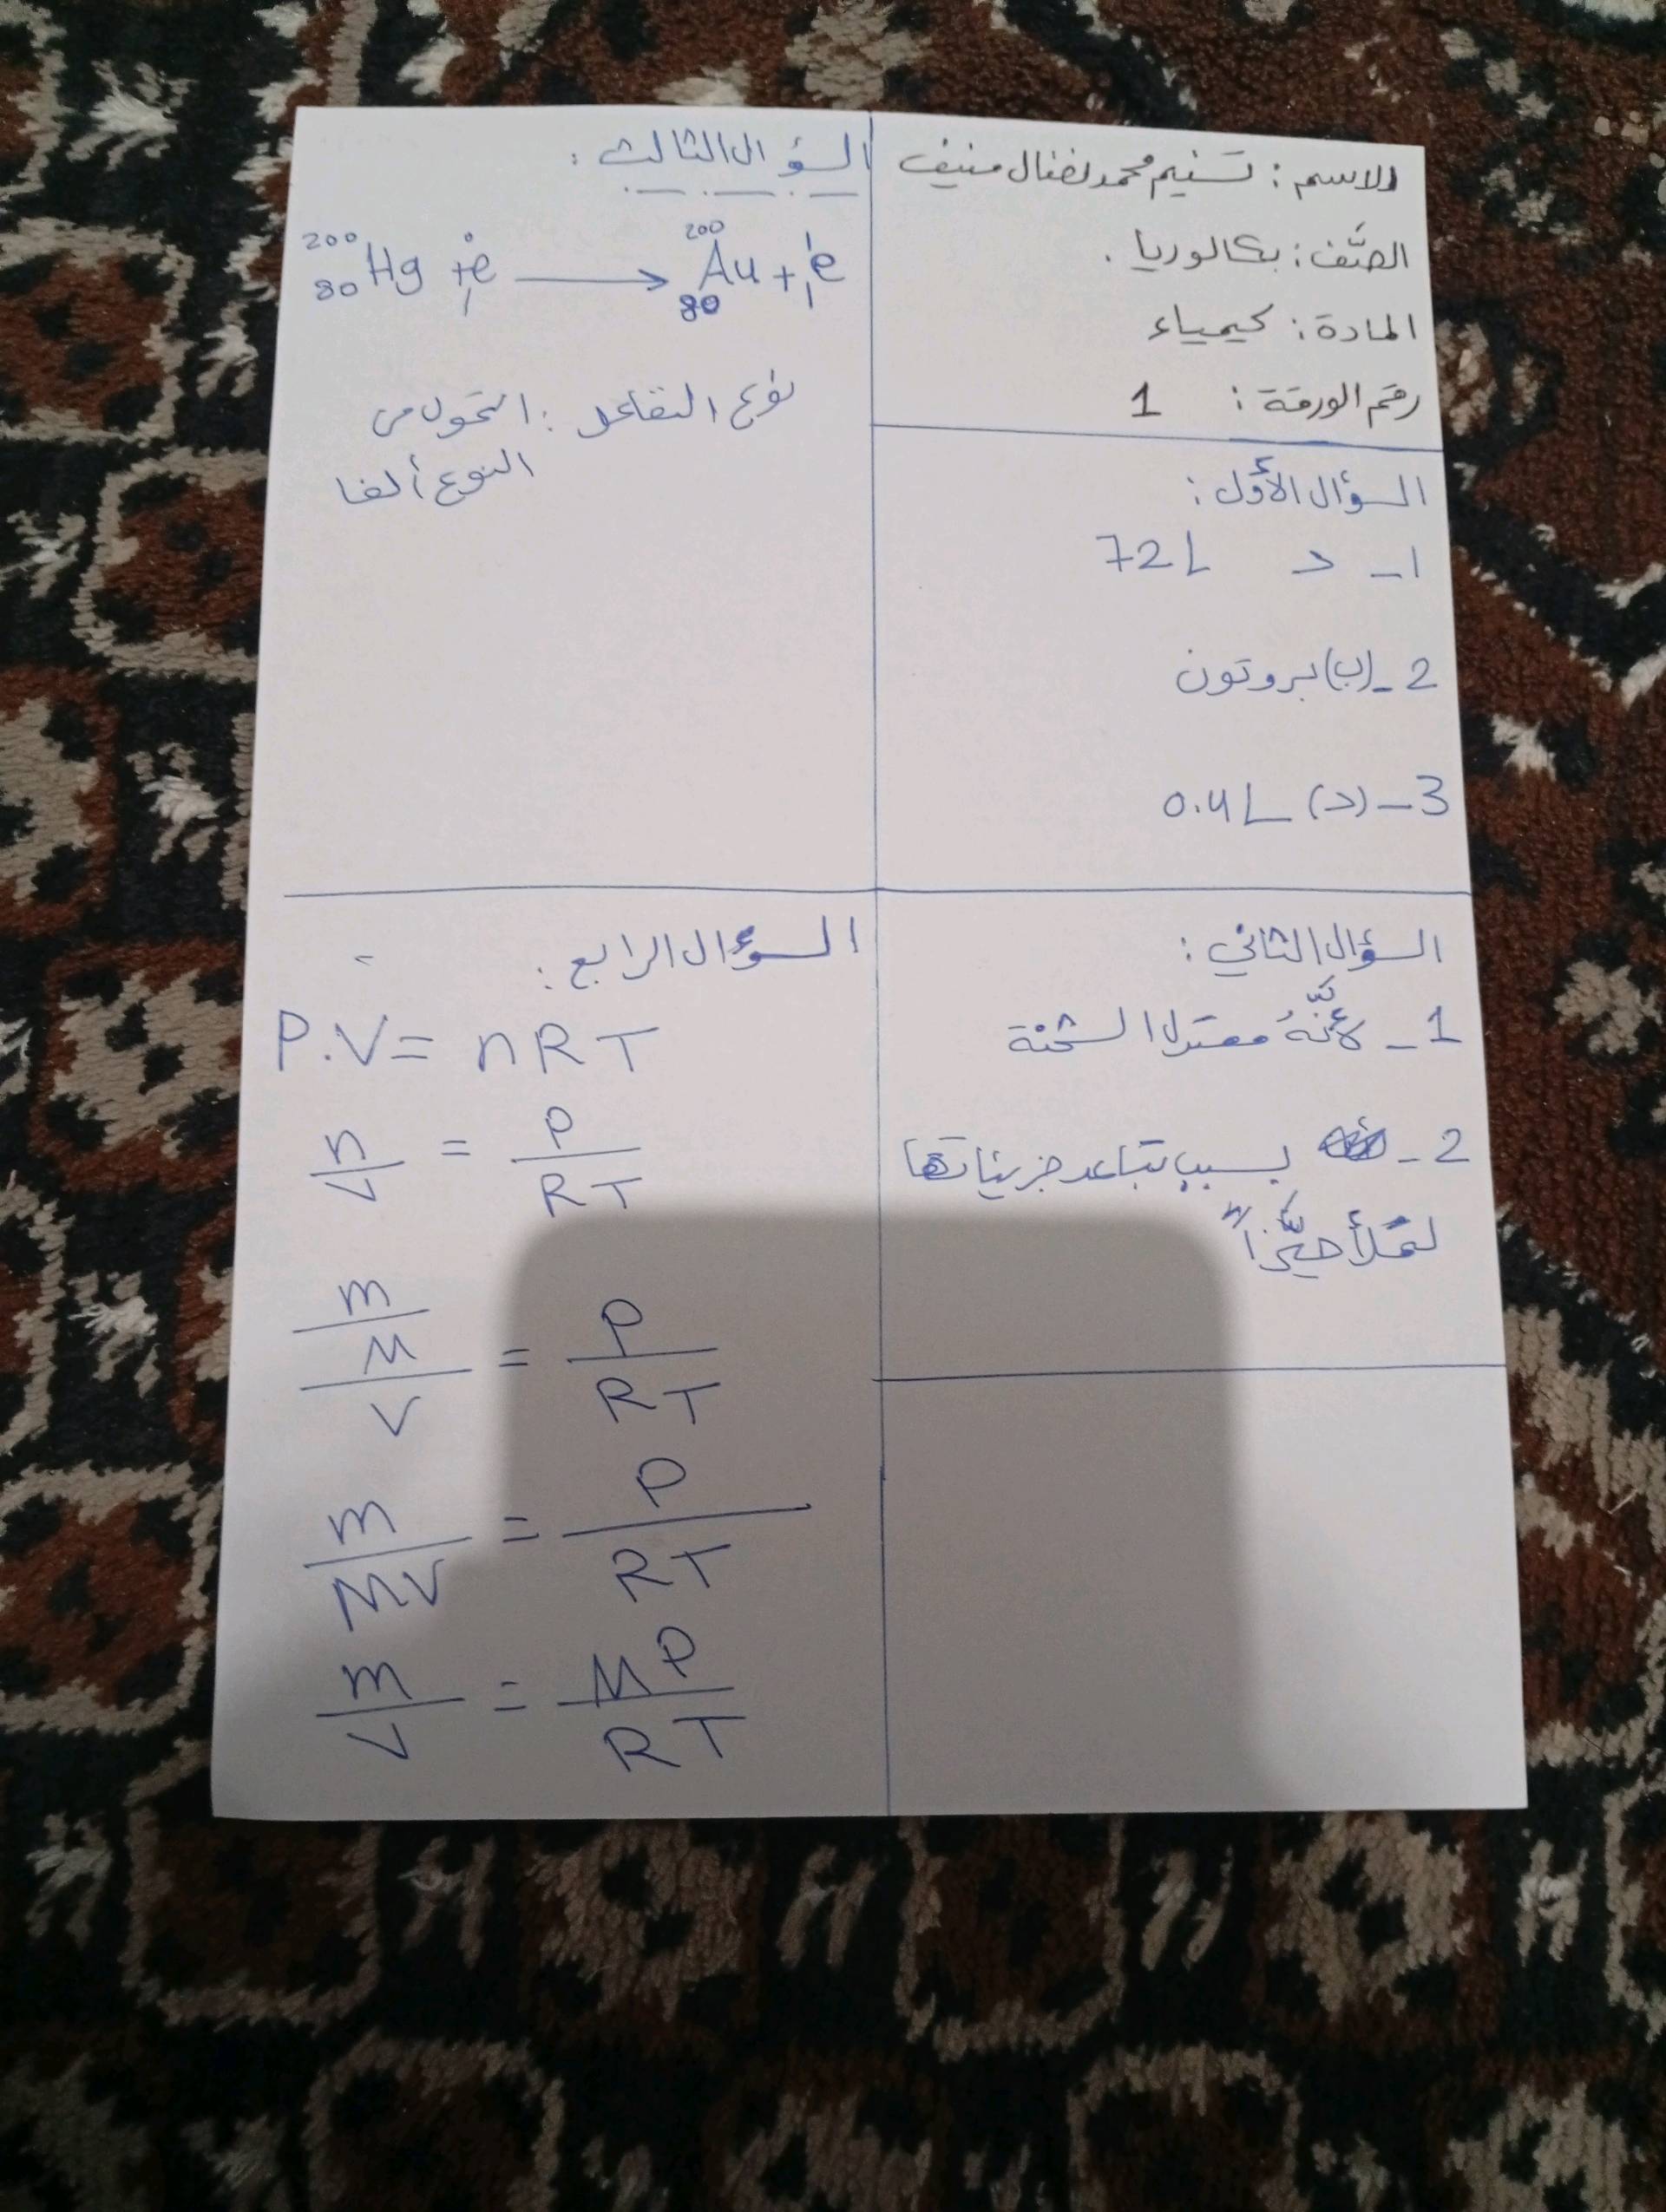 الاسم : تسنيم محمد نضال منيف
الصّف : بكالوريا .
المادة : كيمياء
رقم الورقة : 1
السؤال الأول :
1 - د 72 L
2 - (ب) بروتون
3 - (د) 0.4 L
السؤال الثاني :
1 - لأنّهُ معتدل الشحنة
2 - بسبب تباعد جزيئاتها
لتملأ حيّزاً
السؤال الثالث :
²⁰⁰₈₀Hg + ⁰₁e → ²⁰⁰₈₀Au + ¹₁e
نوع التفاعل : التحول من
النوع ألفا
السؤال الرابع :
P.V = nRT
n/V = P/RT
(m/M)/V = P/RT
m/MV = P/RT
m/V = MP/RT